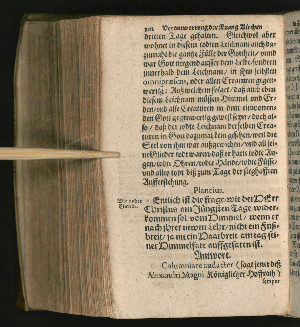 302 Verantwortung der Evang. Kirchen
dritten Tage gehalten. Gleichwol aber
wohnet in diesem todten Leichnam auch da-
zumahl die gantze Fülle der Gottheit / und
war Gott nirgend ausser dem Leibe / sondern
innerhalb dem Leichnam / in ihm selbsten
omnipraesens, oder allen Creaturen gegen-
wertig: Auß welchem folget / daß auch eben
diesem Leichnam müssen Himmel und Er-
den und alle Creaturen in dem
den Gott gegenwertig gewesen seyn / doch al-
so / daß der todte Leichnam derselben Crea-
turen in Gott dazumal kein gesehen / weil die
Seel von ihm war außgewichen / und all sei-
ne Glieder todt waren / daß er hatte todte Au-
gen / todte Ohren / todte Hände / todte Füsse /
und alles todt biß zum Tage der sieghafften
Aufferstehung.
Plancius.
Endlich ist die frage / wie der HErr
Christus am Jüngsten Tage wider-
kommen sol vom Himmel / wenn er
nach ihrer newen Lehr / nicht ein Fuß-
breit / ja nit ein Haarbreit am tag sei-
ner Himmelfart auffgefaren ist.
Antwort.
Calumniare audacter (sagt jener deß
Alexandri Magni Königlicher Hoffrath)
semper